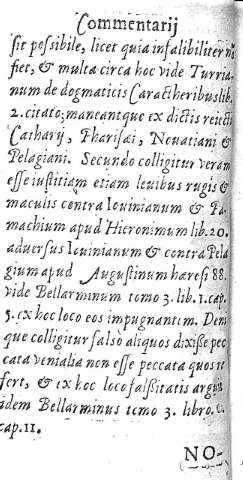 Commentarij
sit possibile, licet quia infalibiliter
fiet, & multa circa hoc vide Turria-
num de dogmaticis Caractheribus lib.
2. citato; maneantque ex dictis reiecti
Catharij, Pharisai, Neuatiani &
Pelagiani. Secundo colligitur veram
esse iustitiam etiam leuibus rugis &
maculis contra Iouinianum &
machium apud Hieronimum lib. 20.
aduersus Iouinianum & contra Pela
gium apud Augustinum hæresi 88.
vide Bellarminum tomo 3. lib. 1. cap.
5. ex hoc loco eos impugnantem. Deni
que colligitur falso aliquos dixisse pec
cata venialia non esse peccata quos
fert, & ex hoc loco falsitatis
idem Bellarminus tomo 3. libro.
cap. 11.
NO-